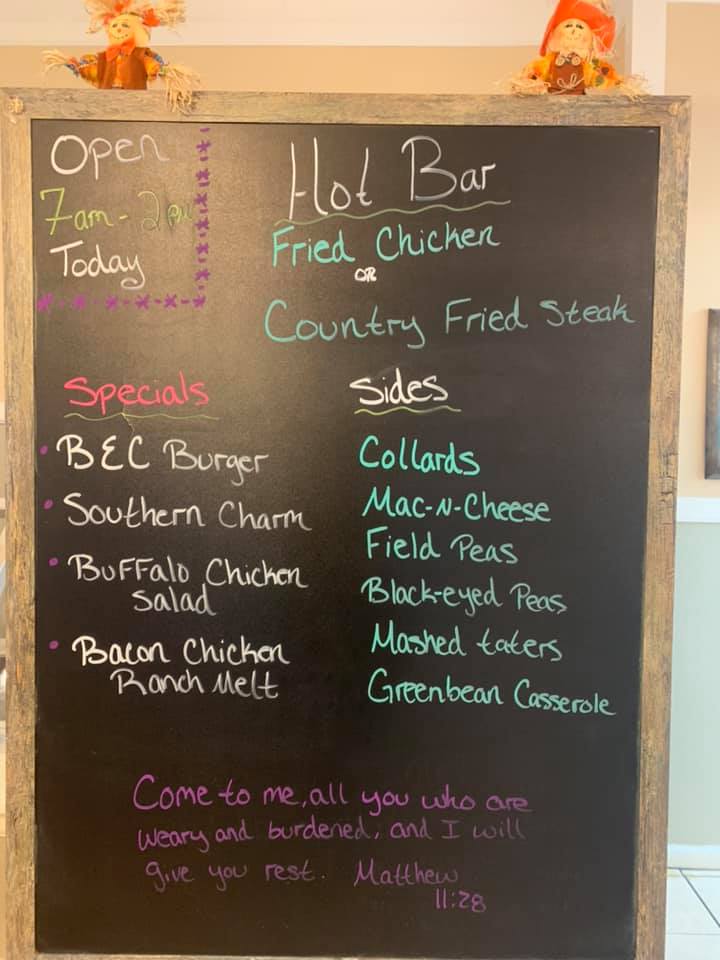 Open
7am - 2pm
Today
Hot Bar
Fried Chicken
OR
Country Fried Steak
Specials
BEC Burger
Southern Charm
Buffalo Chicken
Salad
Bacon Chicken
Ranch Melt
Sides
Collards
Mac-N-Cheese
Field Peas
Black-eyed Peas
Mashed taters
Greenbean Casserole
Come to me, all you who are
weary and burdened, and I will
give you rest. Matthew
11:28